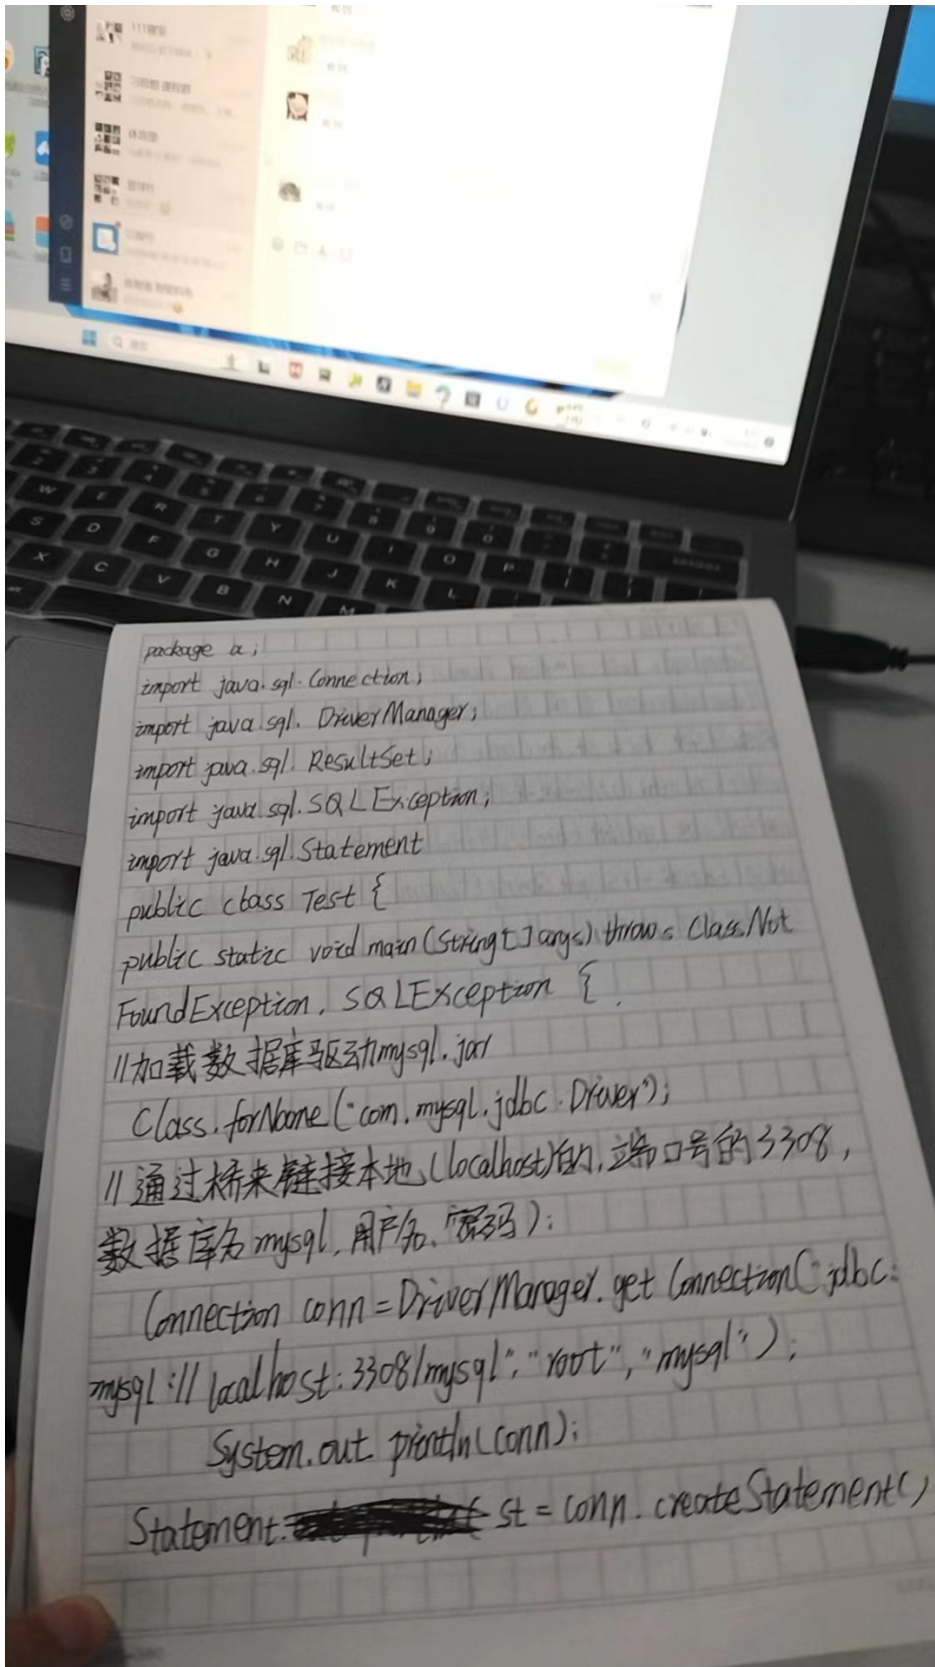 package a;
import java.sql.Connection;
import java.sql. DriverManager;
import java.sql. ResultSet;
import java.sql.SQLException;
import java.sql.Statement
public class Test {
public static void main(String[] args) throws ClassNot
FoundException, SQLException {
//加载数据库驱动mysql.jar
Class.forName("com.mysql.jdbc.Driver");
//通过桥来链接本地(localhost)的,端口号的3308,
数据库名mysql,用户名、密码);
Connection conn = DriverManager.get Connection("jdbc:
mysql://localhost:3308/mysql","root","mysql");
System.out println(conn);
Statement. st = conn.createStatement()